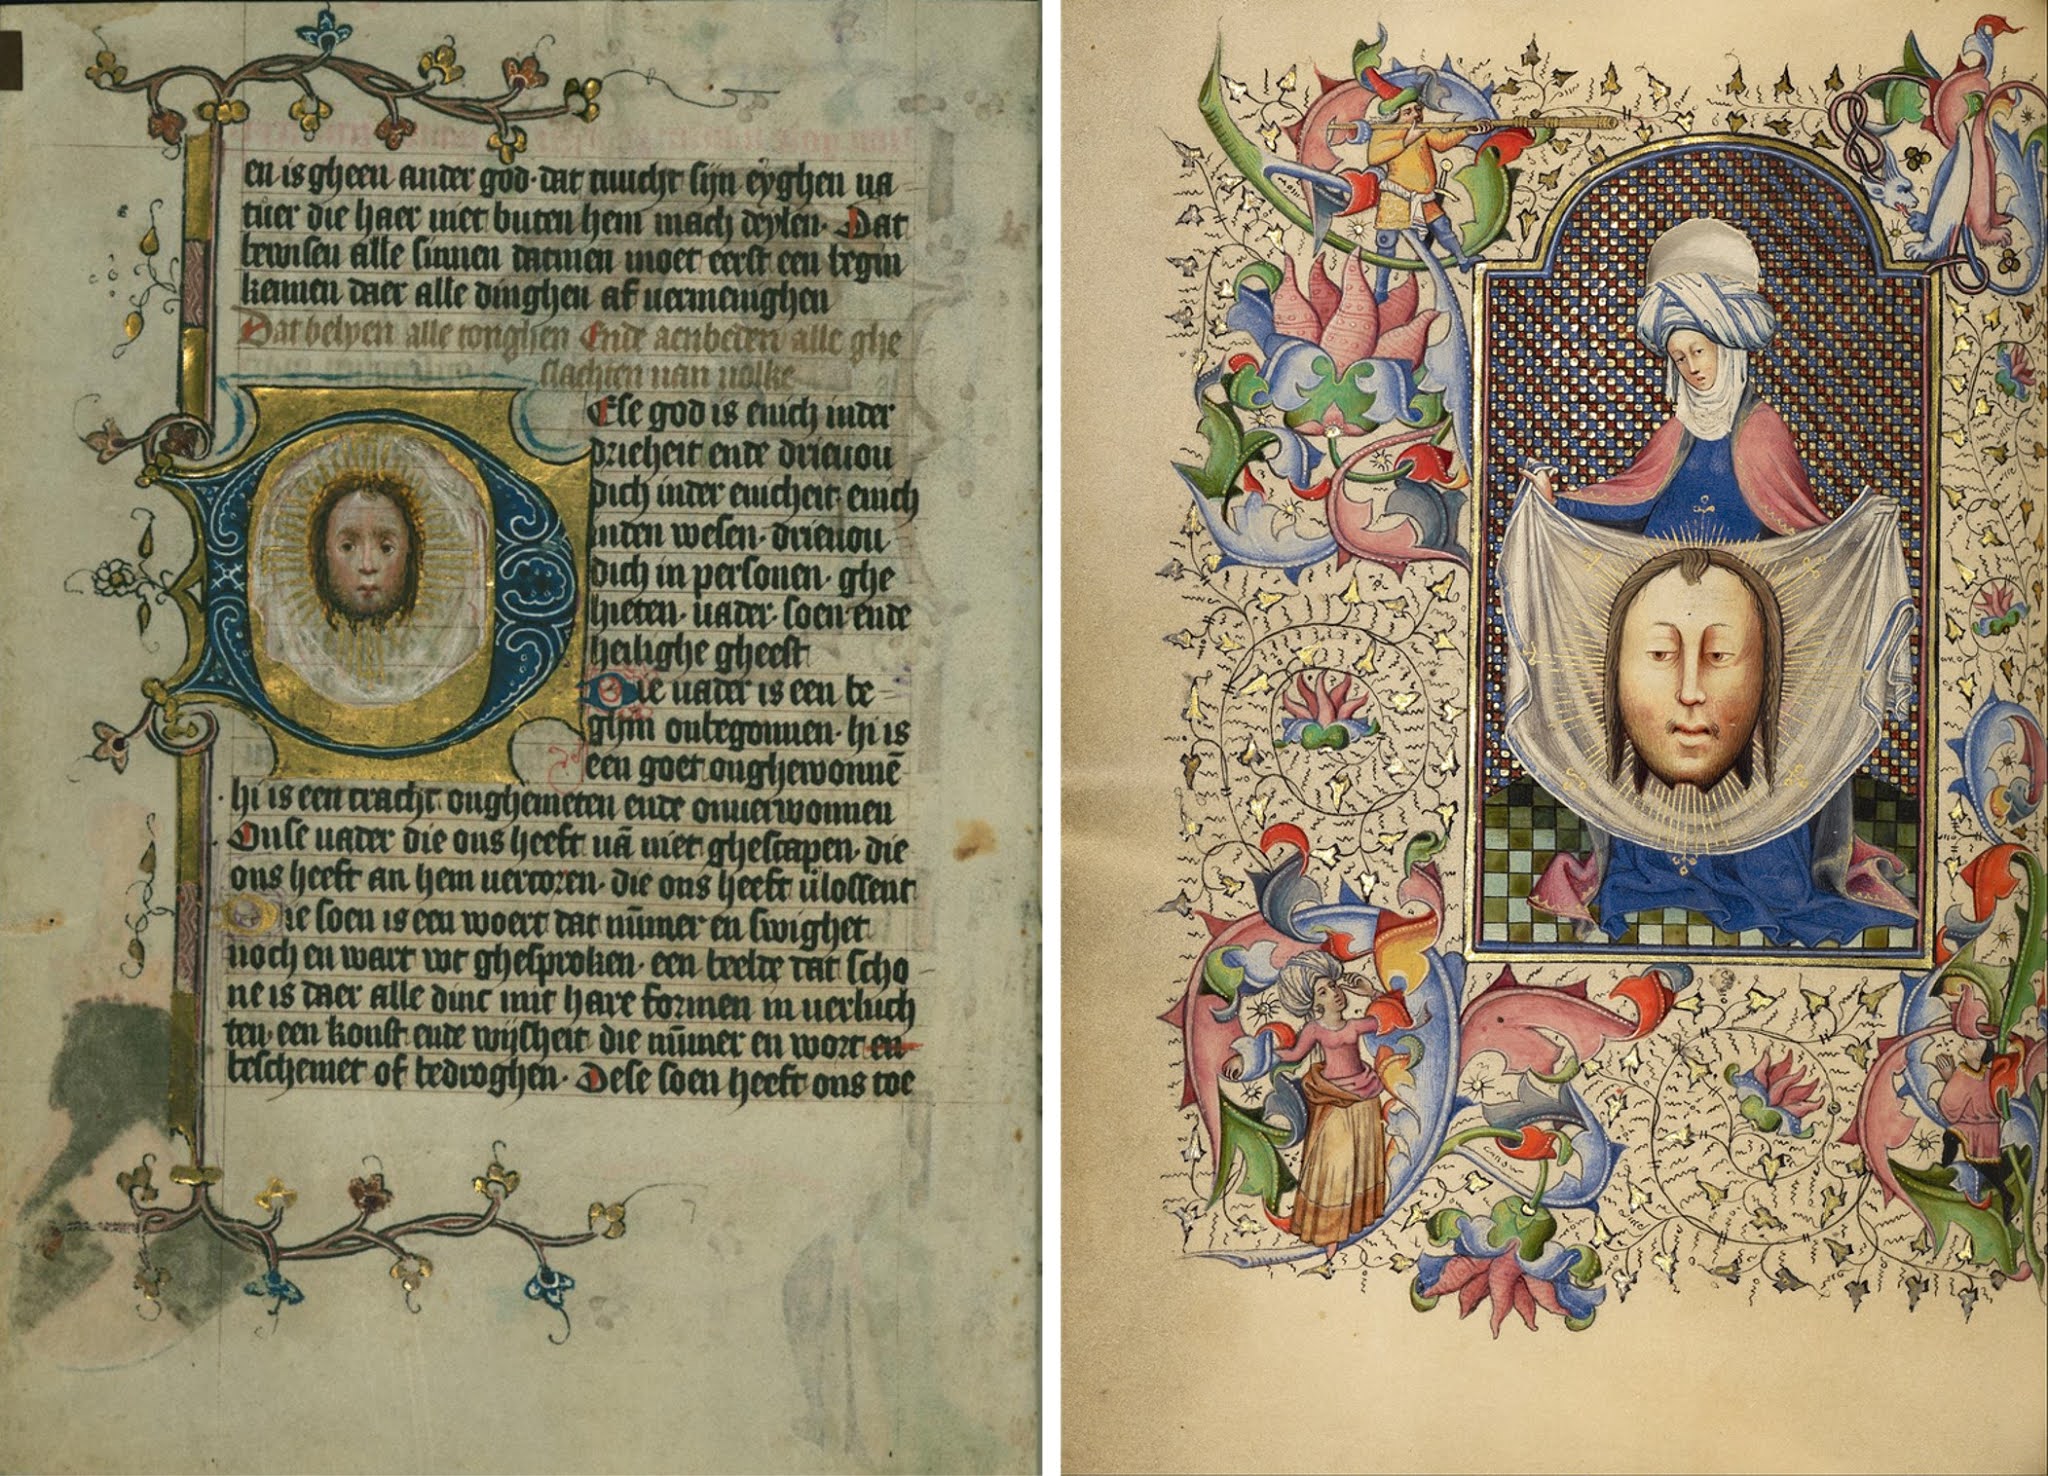 en is gheen ander god. dat tuucht sijn eyghen na
tuer die haer niet buten hem mach deylen. Dat
bewisen alle sinnen datmen moet eerst een begin
kennen daer alle dinghen af vermenighen
Dat belyen alle tonghen Ende aenbeden alle ghe
slachten van volke
Ese god is enich inder
drieheit ende drievou
dich inder enicheit enich
inden wesen. drievou
dich in personen. ghe
hieten. vader. soen ende
heilighe gheest
Die vader is een be
ghin onbegonnen. hi is
een goet onghewonnē
hi is een cracht onghemeten ende onverwonnen
Onse vader die ons heeft vā niet ghescapen. die
ons heeft an hem vercoren. die ons heeft v̄lossent
Die soen is een woert dat nūmer en swighet
noch en wart wt ghesproken. een beelde dat scho
ne is daer alle dinc mit hare formen in verluch
ten. een konst ende wijsheit die nūmer en wort en
beschemet of bedroghen. Dese soen heeft ons toe